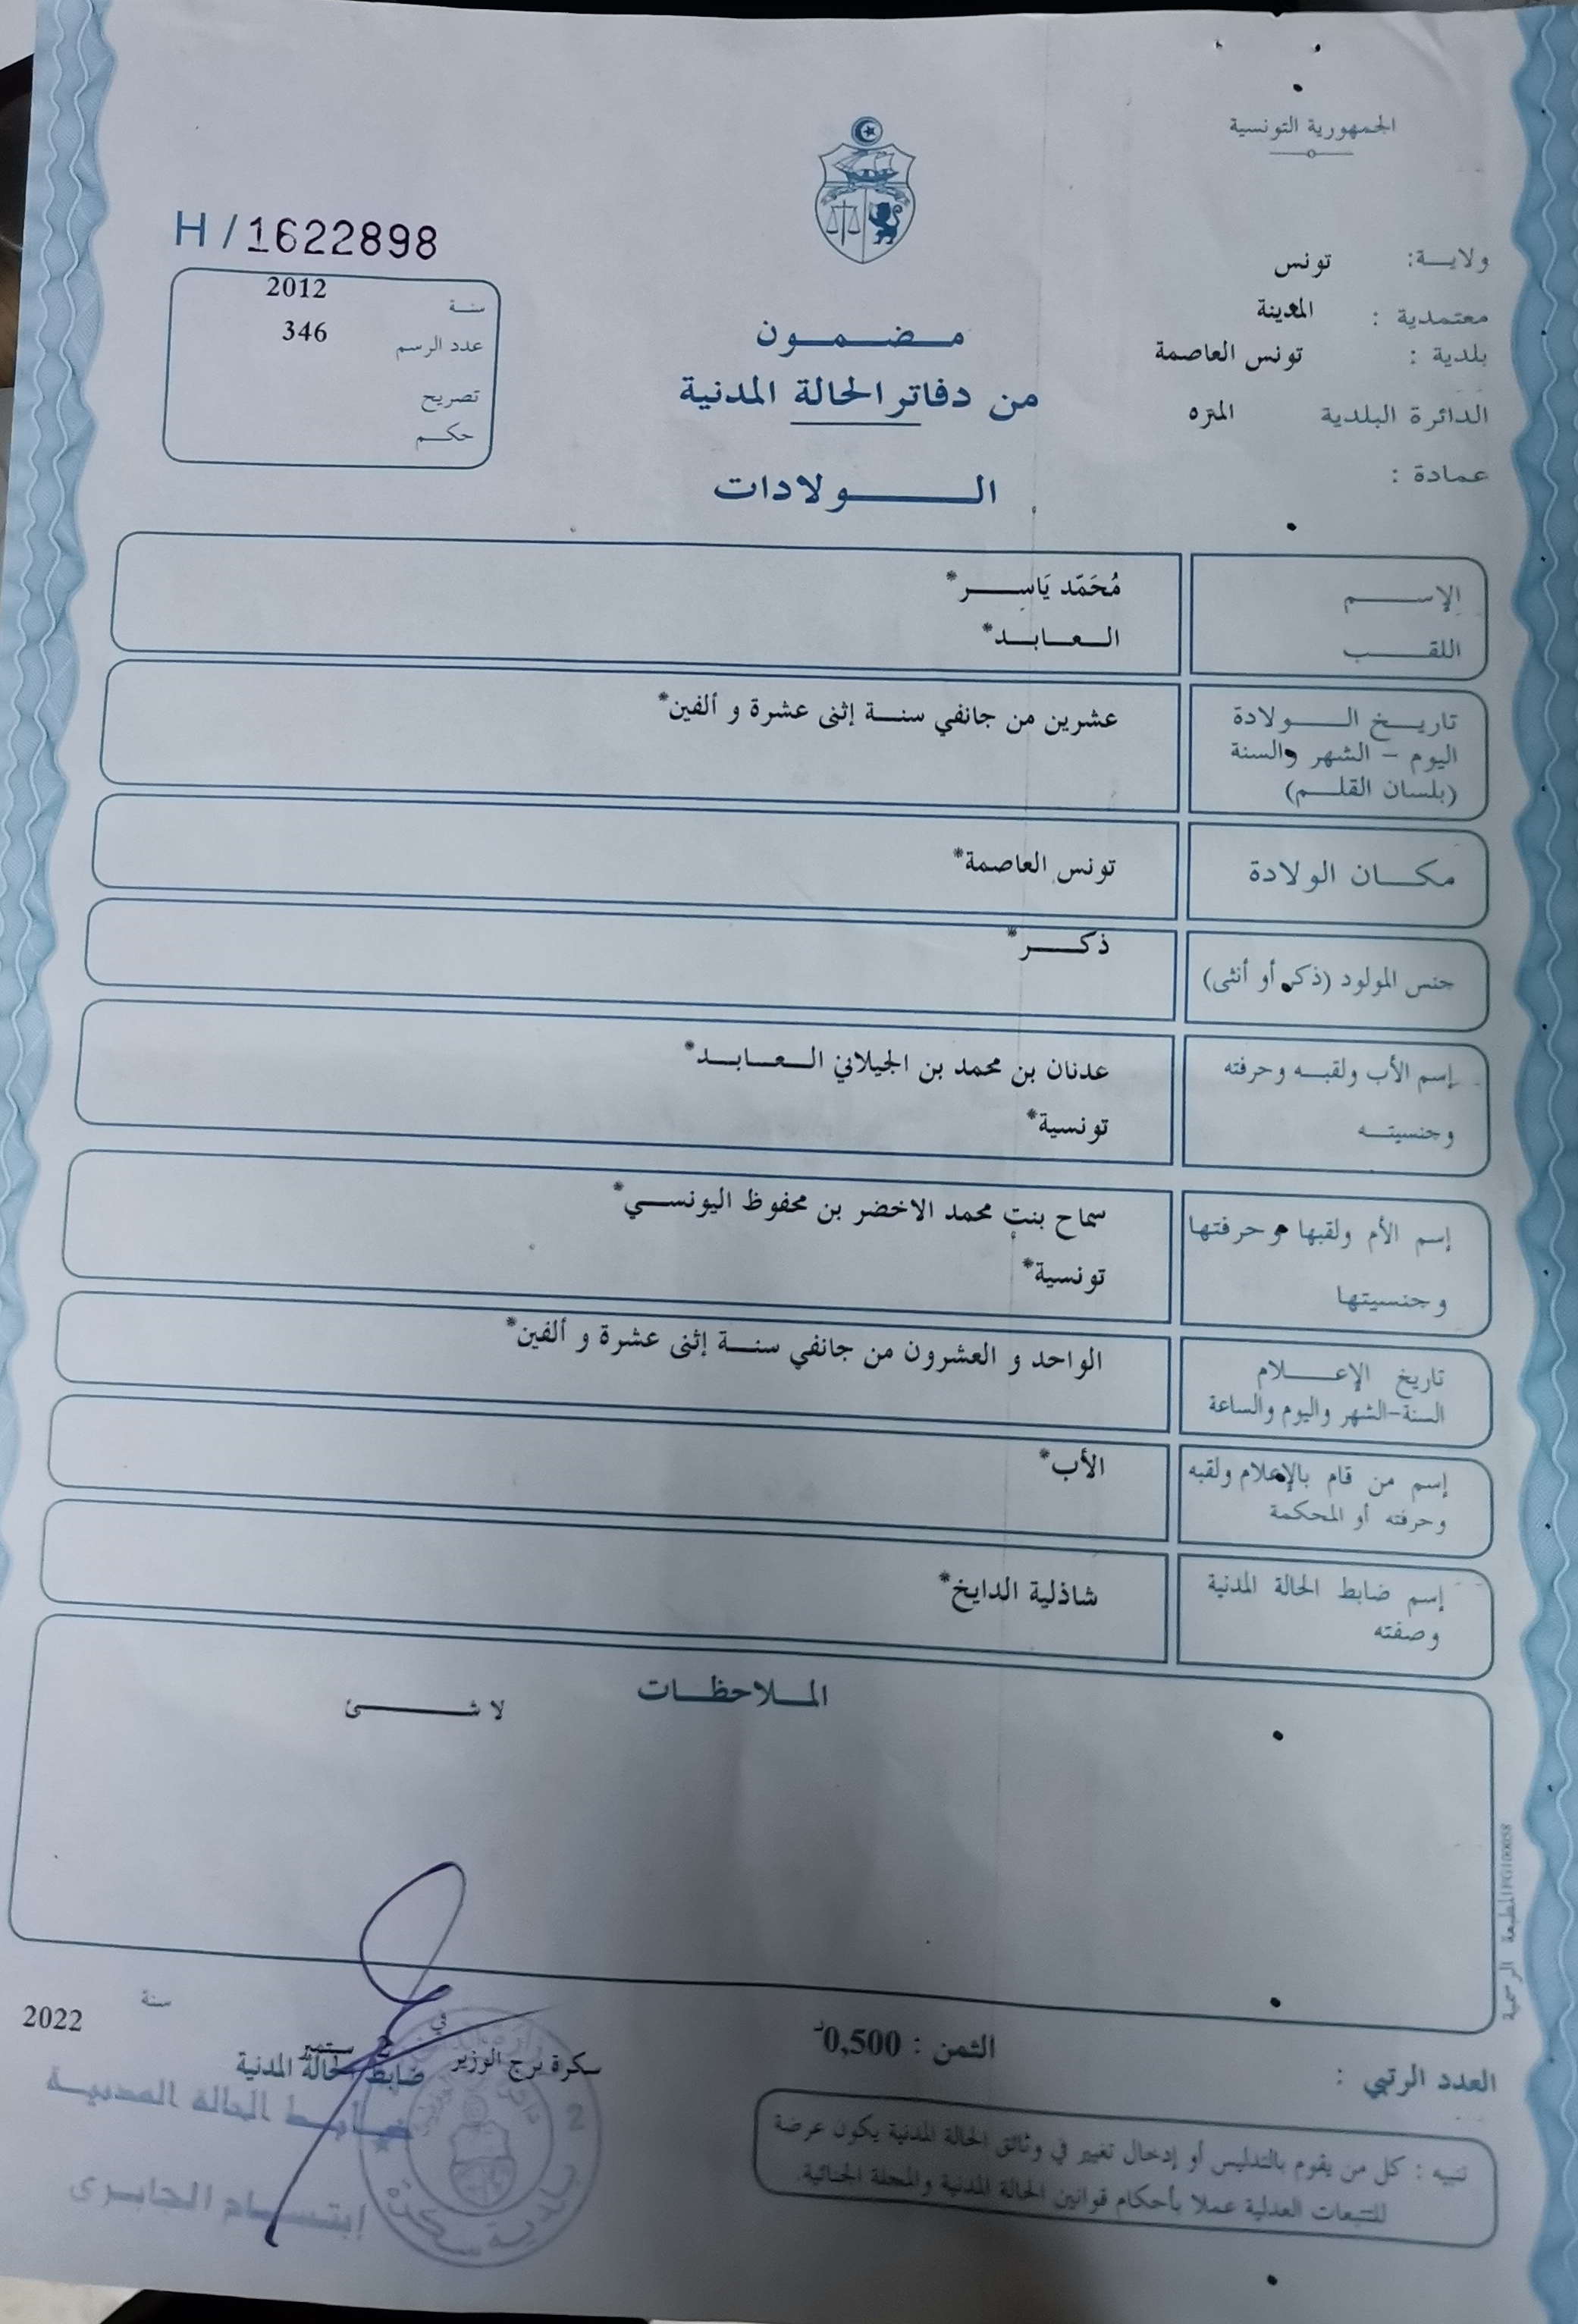 الجمهورية التونسية
H / 1622898
ولايـــة: تونس
معتمدية : المدينة
بلدية : تونس العاصمة
الدائرة البلدية المنزه
عمادة :
سنة 2012
عدد الرسم 346
تصريح
حكم
مضمون
من دفاتر الحالة المدنية
الـولادات
الإسـم مُحَمّد يَاسِـر*
اللقـب العـابـد*
تاريـخ الـولادة عشرين من جانفي سنـة إثنى عشرة و ألفين*
اليوم - الشهر والسنة
(بلسان القلـم)
مكـان الولادة تونس العاصمة*
جنس المولود (ذكر أو أنثى) ذكـر*
إسم الأب ولقبـه وحرفته عدنان بن محمد بن الجيلاني العـابـد*
وجنسيتـه تونسية*
إسم الأم ولقبها وحرفتها سماح بنت محمد الاخضر بن محفوظ اليونسـي*
وجنسيتها تونسية*
تاريخ الإعـلام الواحد و العشرون من جانفي سنـة إثنى عشرة و ألفين*
السنة-الشهر واليوم والساعة
إسم من قام بالإعلام ولقبه الأب*
وحرفته أو المحكمة
إسم ضابط الحالة المدنية شاذلية الدايخ*
وصفته
الملاحظات
لا شـئ
المطبعة الرسمية
سكرة برج الوزير في 2 سبتمبر سنة 2022
ضابط الحالة المدنية
ضابط الحالة المدنية
إبتسام الجابري
بلدية سكرة
2
الثمن : 0,500د
العدد الرتبي :
تنبيه : كل من يقوم بالتدليس أو إدخال تغيير في وثائق الحالة المدنية يكون عرضة
للتتبعات العدلية عملا بأحكام قوانين الحالة المدنية والمجلة الجنائية.